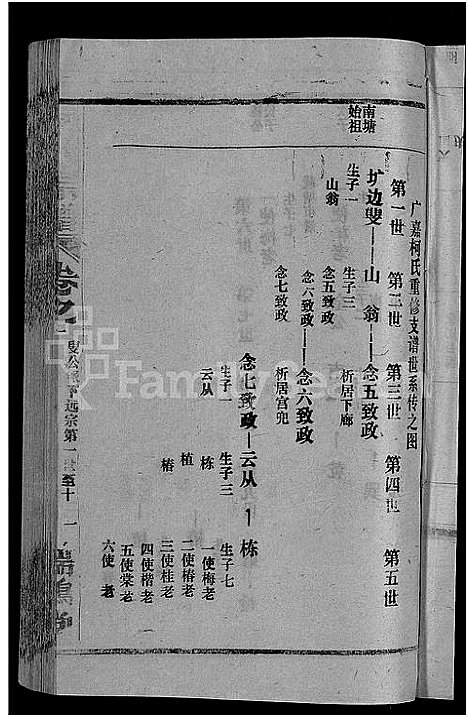 广嘉柯氏重修支谱世系传之图
第一世 第二世 第三世 第四世 第五世
南塘
始祖
圹边叟——山翁——念五致政
生子一
山翁
生子三
念五致政
念六致政——念六致政
念七致政
析居下廊
析居宫兜
念七致政—云从—栋
生子三
云从
生子三
栋
植
椿
生子七
一使梅老
二使椿老
三使桂老
四使楷老
五使棠老
六使 老
卷九
远宗第一世至十
一
FamilySearch